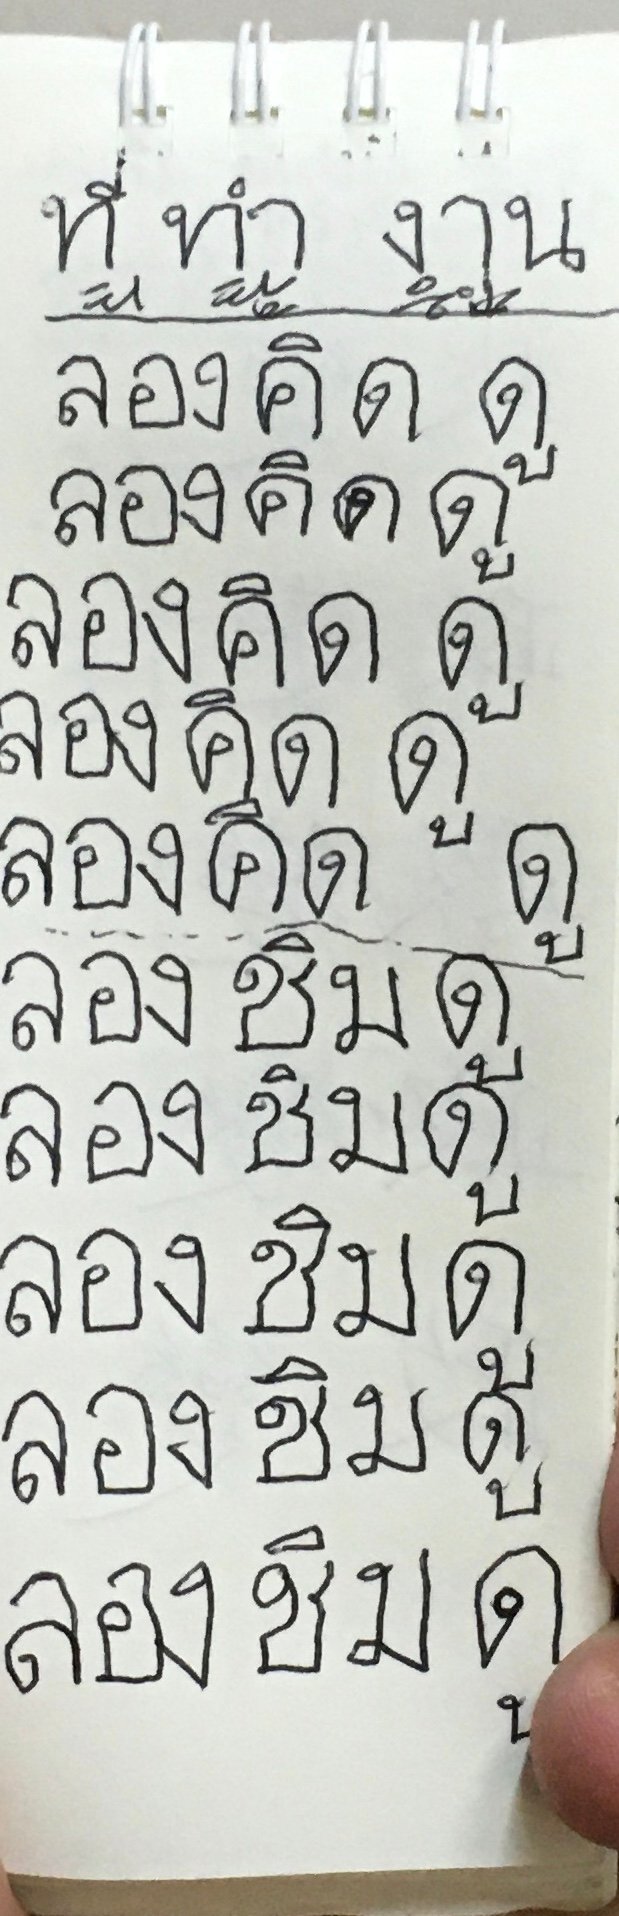 ที่ ทำ งาน
ลองคิด ดู
ลองคิด ดู
ลองคิด ดู
ลองคิด ดู
ลองคิด ดู
ลอง ชิม ดู
ลอง ชิม ดู
ลอง ชิม ดู
ลอง ชิม ดู
ลอง ชิม ดู